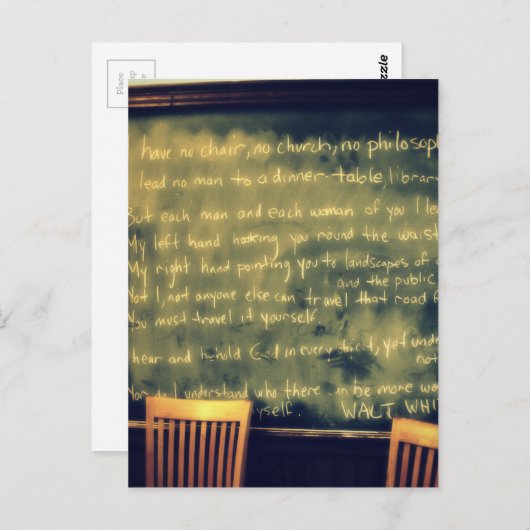 Place
mp
zzle
have no chair, no church, no philosop
lead no man to a dinner-table, librar
But each man and each woman of you I le
My left hand hooking you round the waist
My right hand pointing you to landscapes of
and the public
Not I, not anyone else can travel that road f
You must travel it yourself.
hear and behold God in every object, yet unde
not
Nor do I understand who there can be more wo
myself. WALT WHI